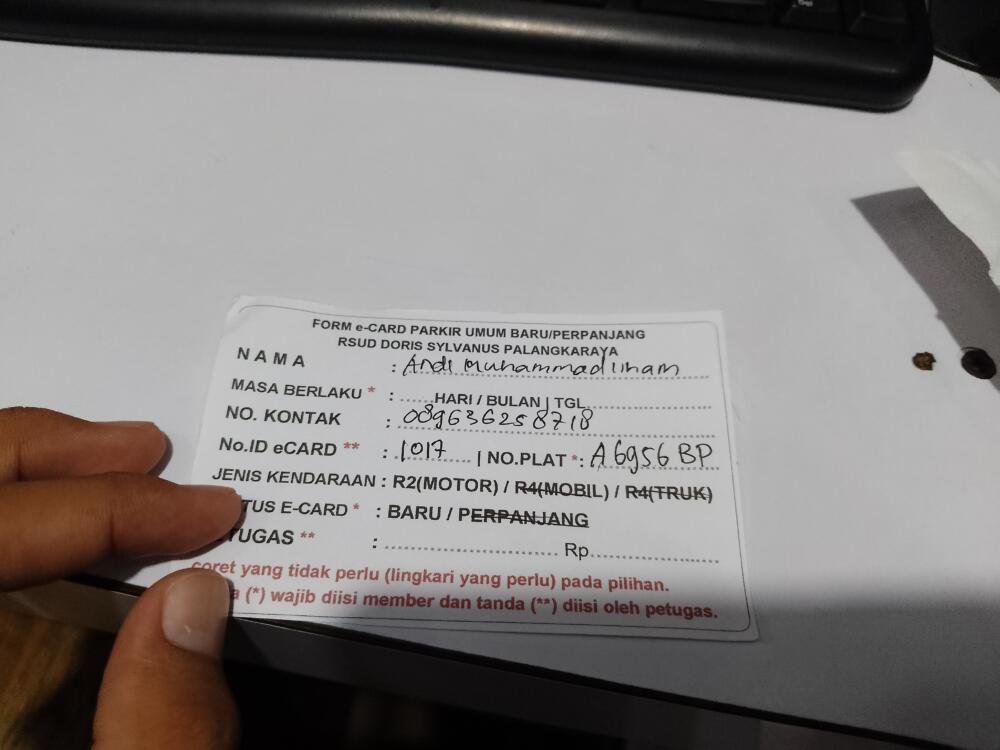 FORM e-CARD PARKIR UMUM BARU/PERPANJANG
RSUD DORIS SYLVANUS PALANGKARAYA
NAMA : Andi Muhammad Ilham
MASA BERLAKU * : ......HARI / BULAN | TGL......................
NO. KONTAK : 089636258718
No.ID eCARD ** : 1017 | NO.PLAT *: A 6956 BP
JENIS KENDARAAN : R2(MOTOR) / R4(MOBIL) / R4(TRUK)
TUS E-CARD * : BARU / PERPANJANG
TUGAS ** : .............................. Rp......................
coret yang tidak perlu (lingkari yang perlu) pada pilihan.
a (*) wajib diisi member dan tanda (**) diisi oleh petugas.